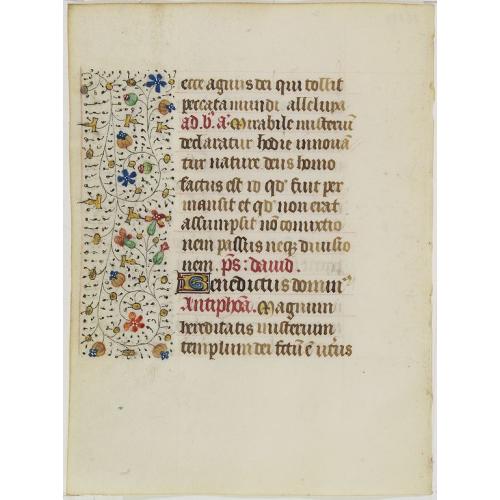 ecce agnus dei qui tollit
peccata mundi alleluya
ad.b̄.ā. Mirabile misteriū
declaratur hodie innoua
tur nature deus homo
factus est id qd' fuit per
mansit et qd' non erat
assumpsit nō comixtio
nem passus neq; diuisio
nem. p̄s: dauid.
Benedictus domin⁹
Antiphoā. Magnum
hereditatis misterium
templum dei fctū ē ut'us